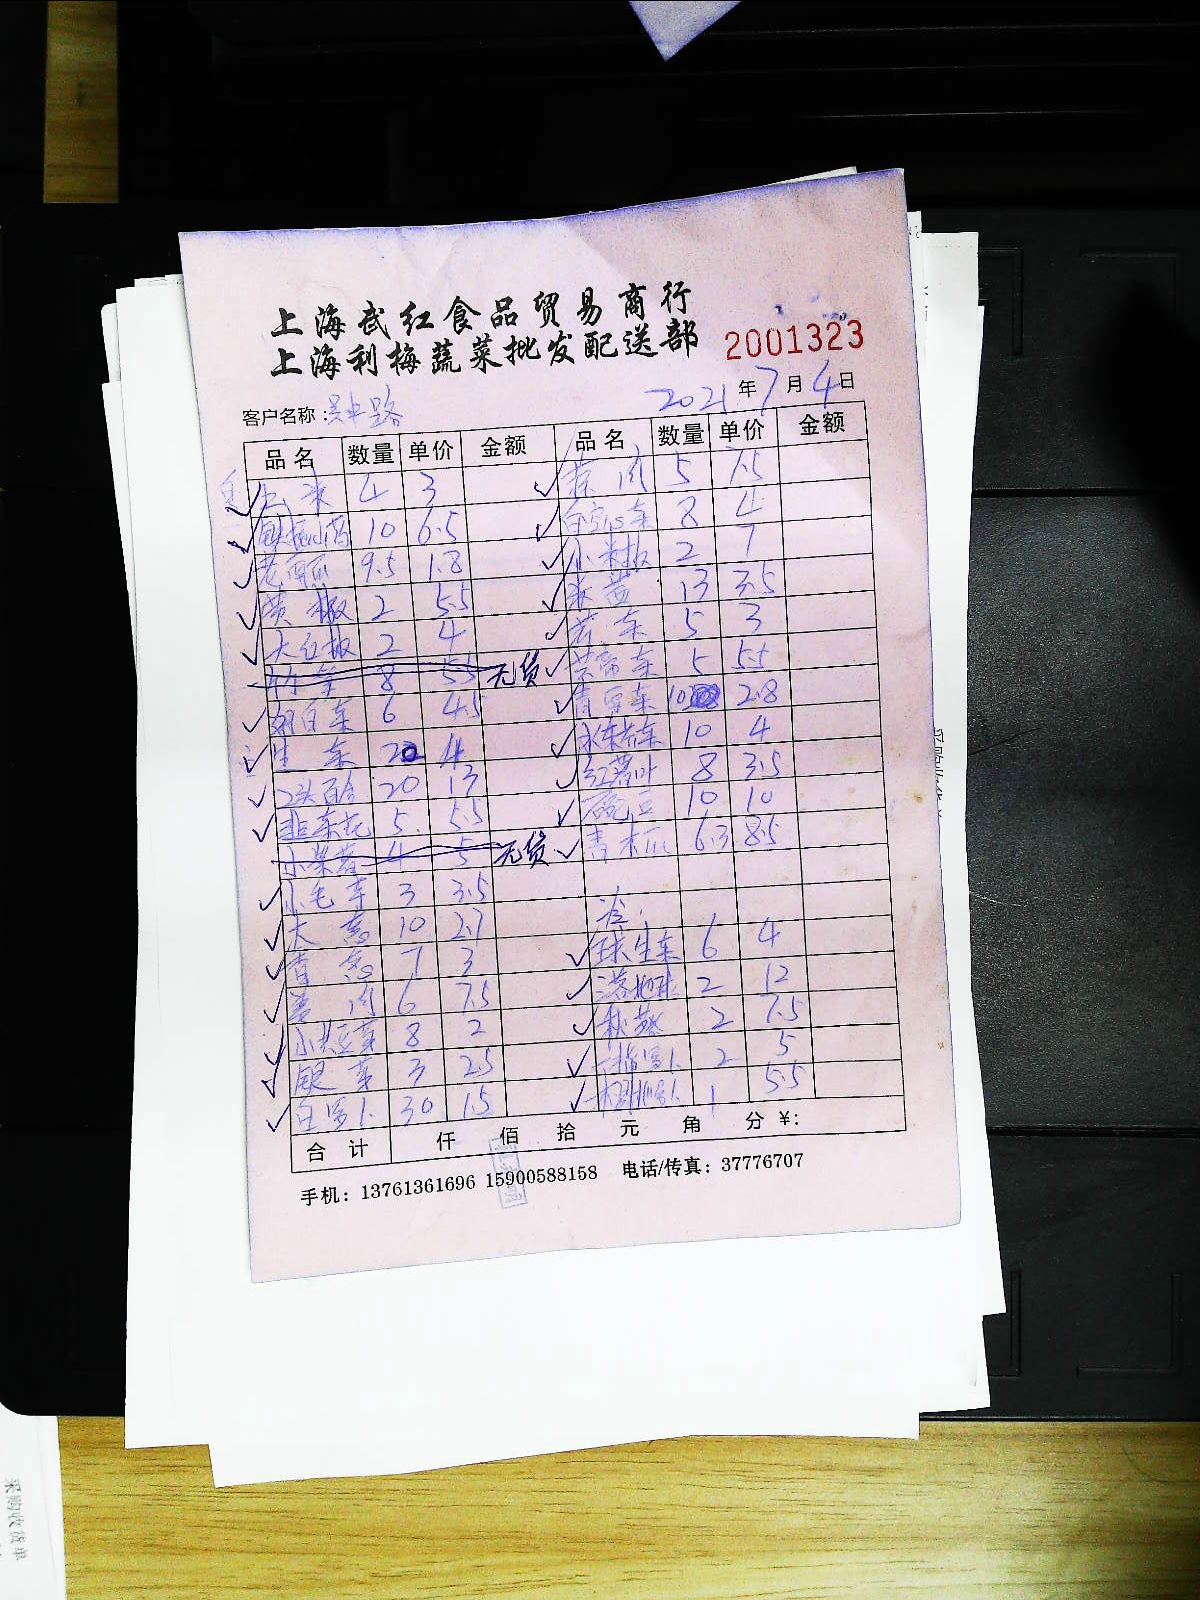 上海武红食品贸易商行
上海利梅蔬菜批发配送部
2001323
2021年7月4日
客户名称:
品名 数量 单价 金额 品名 数量 单价 金额
4 3 5 7.5
10 6.5 8 4
老南瓜 9.5 1.8 小米椒 2 7
黄椒 2 5.5 13 3.5
大红椒 2 4 芹菜 5 3
竹笋 8 5.5 无货 5 5.5
6 4.5 10 2.8
生菜 20 4 10 4
20 13 红薯叶 8 3.5
韭菜花 5 5.5 豌豆 10 10
小紫薯 4 5 无货 青木瓜 6.3 8.5
小毛芋 3 3.5
大葱 10 2.7
青葱 7 3 球生菜 6 4
姜肉 6 7.5 2 12
小黄豆芽 8 2 秋葵 2 7.5
银芽 3 2.5 2 5
白罗卜 30 1.5 1 5.5
合计 仟 佰 拾 元 角 分 ¥:
手机: 13761361696 15900588158 电话/传真: 37776707
采购收货单